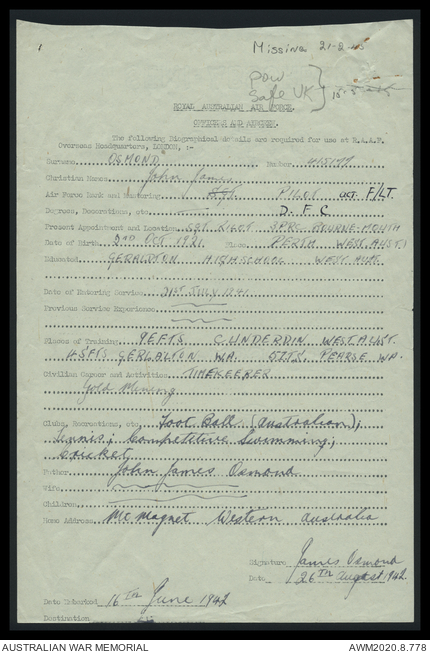 1
Missing 21-2-45
POW
Safe UK } 15-5-45
ROYAL AUSTRALIAN AIR FORCE.
OFFICERS AND AIRMEN.
The following Biographical details are required for use at R.A.A.F.
Overseas Headquarters, LONDON, :-
Surname OSMOND Number
Christian Names John James
Air Force Rank and Mustering Sgt PILOT F/LT.
Degrees, Decorations, etc. D.F.C
Present Appointment and Location SGT PILOT 3PRC BOURNEMOUTH
Date of Birth 2ND OCT 1921 Place PERTH WEST. AUST
Educated GERALDTON HIGH SCHOOL WEST AUS.
Date of Entering Service 21ST JULY 1941
Previous Service Experience
Places of Training 9EFTS CUNDERDIN WEST. AUST.
4SFTS GERALDTON WA. 5ITS PEARSE WA.
Civilian Career and Activities TIMEKEEPER
Gold Mining
Clubs, Recreations, etc. Foot Ball (Australian);
Tennis; Competitive Swimming;
Cricket
Father John James Osmond
Wife
Children
Home Address Mt Magnet Western Australia
Signature James Osmond
Date 26TH August 1942.
Date Embarked 16TH June 1942
Destination
AUSTRALIAN WAR MEMORIAL
AWM2020.8.778